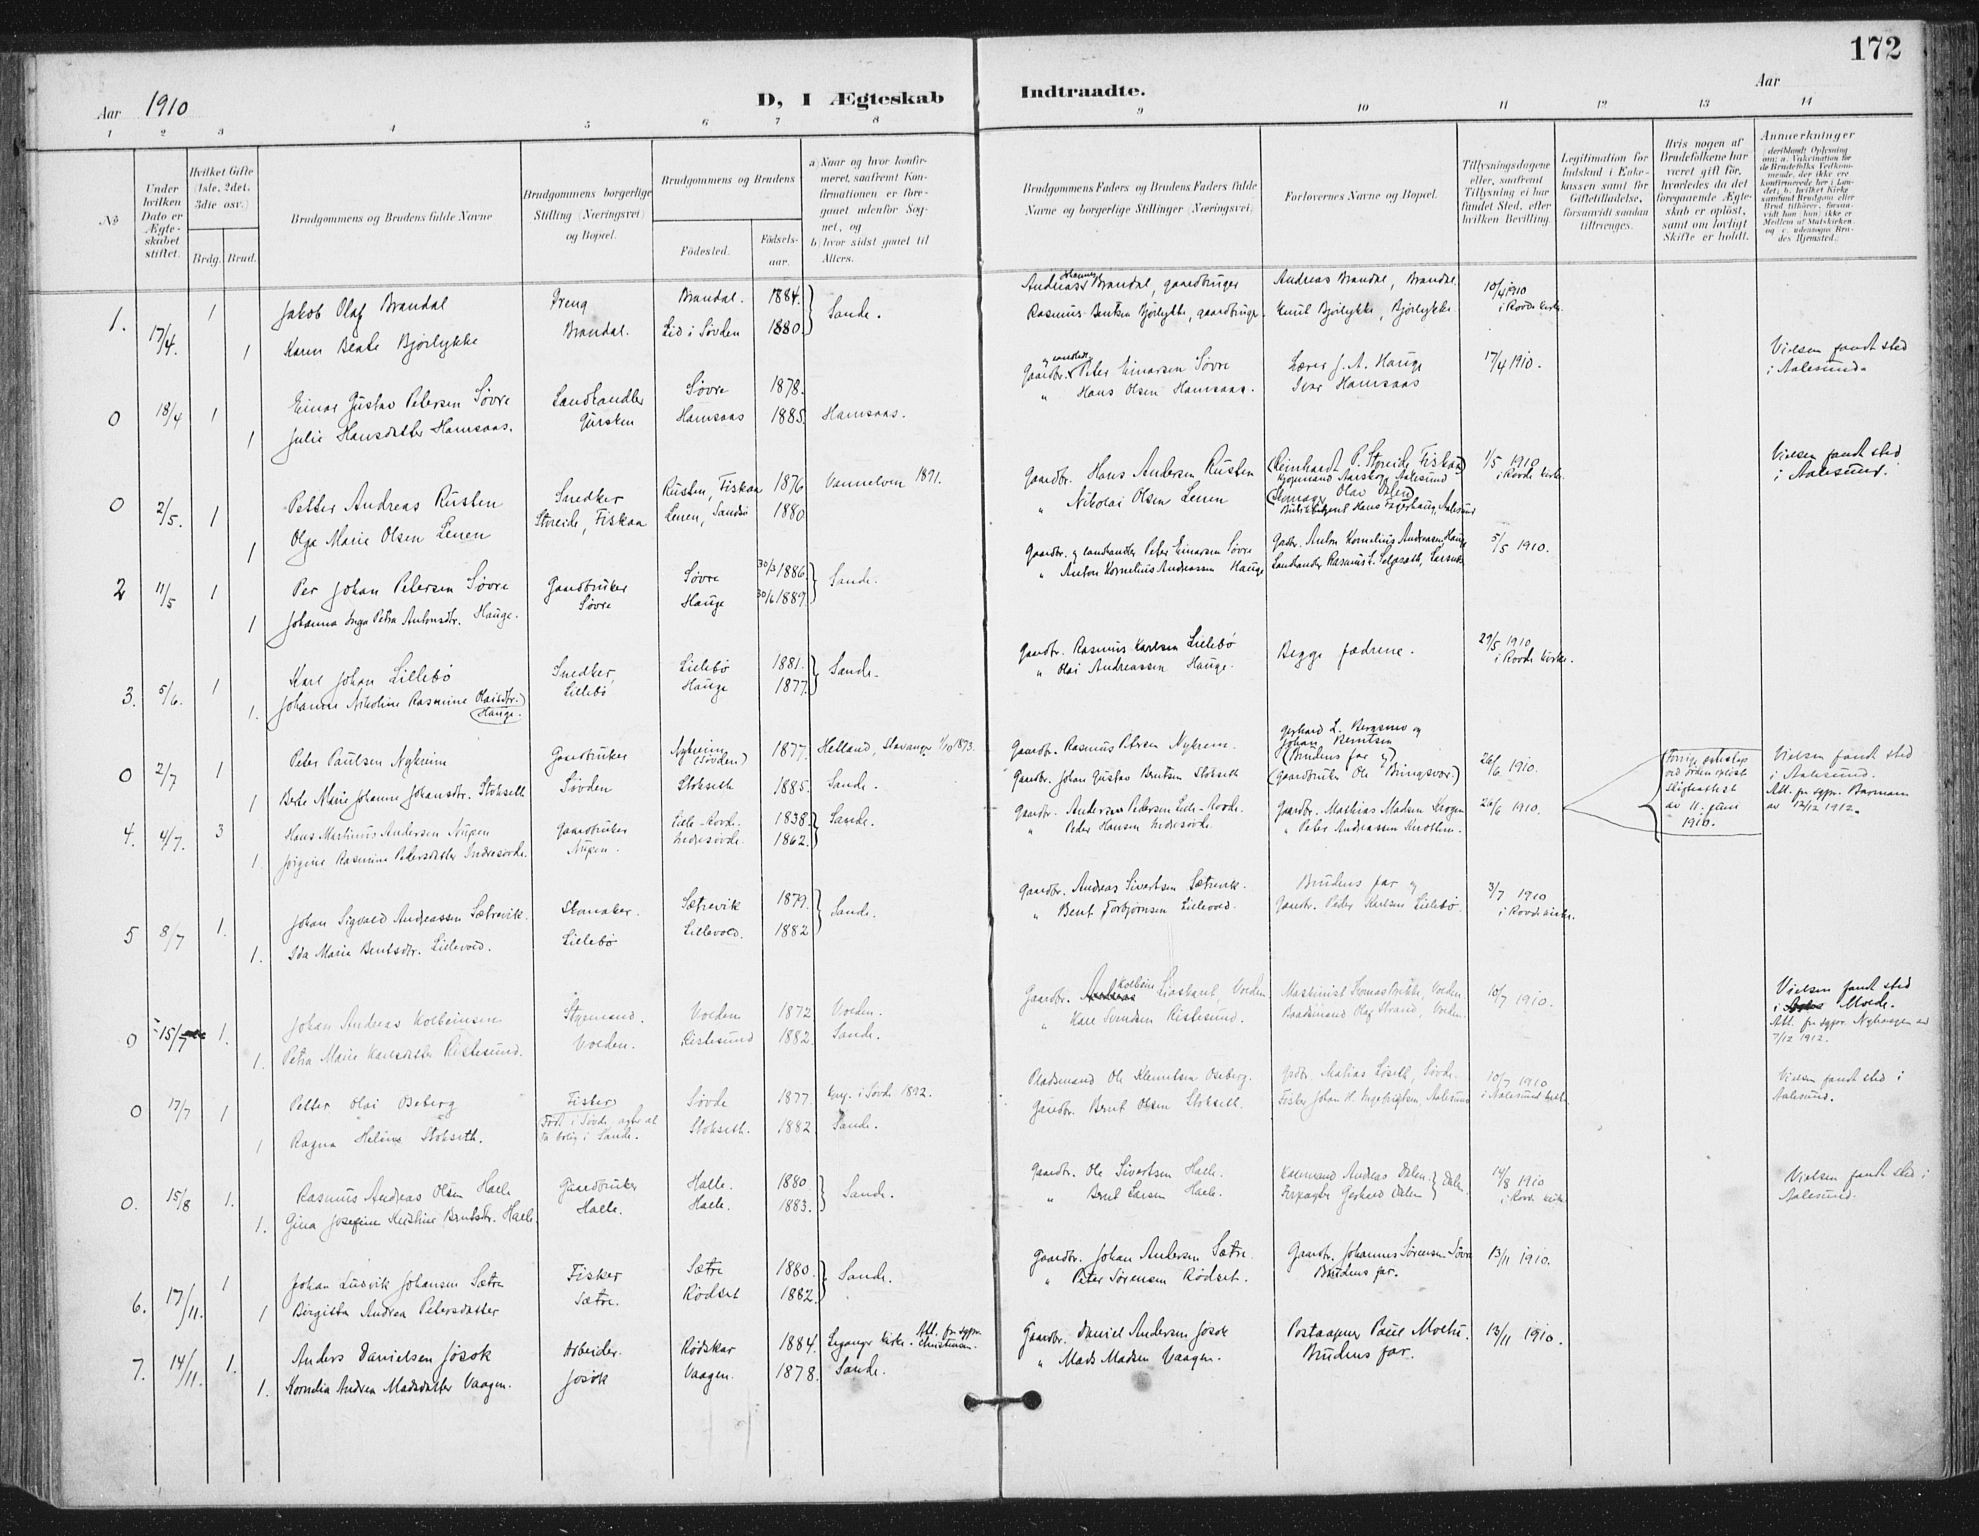 172
Aar 1910
D, I Ægteskab
Indtraadte.
Aar
1 2 3 4 5 6 7 8 9 10 11 12 13 14
No.
Under hvilken Dato er Ægteskabet stiftet.
Hvilket Gifte (1ste, 2det, 3die osv.)
Brdg. Brud.
Brudgommens og Brudens fulde Navne
Brudgommens borgerlige Stilling (Næringsvei) og Bopæl.
Brudgommens og Brudens
Fødested.
Fødselsaar.
a) Naar og hvor konfirmeret, saafremt Konfirmationen er foregaaet udenfor Sognet, og
b) hvor sidst gaaet til Alters.
Brudgommens Faders og Brudens Faders fulde Navne og borgerlige Stillinger (Næringsvei)
Forlovernes Navne og Bopæl.
Tillysningsdagene eller, saafremt Tillysning ei har fundet Sted, efter hvilken Bevilling.
Legitimation for Indskud i Enkekassen samt for Giftetilladelse, forsaavidt saadan tiltrænges.
Hvis nogen af Brudefolkene har været gift før, hvorledes da det foregaaende Ægteskab er opløst, samt om lovligt Skifte er holdt.
Anmærkninger
1. 17/4. 1 Jakob Olaf Brandal Dreng Brandal. 1884. Sande. Andreas Johannes Brandal, gaardbruger Andreas Brandal, Brandal. 10/4 1910
1 Karen Beate Bjørlykke Brandal. Lid i Søvden 1880. Rasmus Bentsen Bjørlykke, gaardbruger. Knut Bjørlykke, Bjørlykke i Rovde kirke.
0 18/4 1 Einar Gustav Petersen Søvre Landhandler Søvre 1878. Gaardbr. og landhdl. Peter Einarsen Søvre Lærer J. A. Hauge 17/4 1910. Vielsen fandt sted
1 Julie Hansdatter Hamsaas. Gursken Hamsaas 1885. Hamsaas. " Hans Olsen Hamsaas. Ivar Hamsaas i Aalesund.
0 2/5. 1 Petter Andreas Rusten Snedker Rusten, Fiskaa 1876 Vannelven 1891. Gaardbr. Hans Andersen Rusten (Reinhardt P. Storeide, Fiskaa) 1/5 1910 Vielsen fandt sted
1 Olga Marie Olsen Lenen Storeide, Fiskaa Lenen, Sandsø 1880 " Nikolai Olsen Lenen Kjøpmand Aarskog Aalesund i Rovde kirke. i Aalesund.
Hans Fagerhaug, Aalesund
2 11/5 1 Per Johan Petersen Søvre Gaardbruker Søvre 30/3 1886. Sande. Gaardbr. og landhandler Peter Einarsen Søvre Grdbr. Anton Kornelius Andreassen Hauge 5/5 1910.
1 Johanna Inga Petra Antonsdtr. Hauge. Søvre Hauge 30/6 1889 " Anton Kornelius Andreassen Hauge Landhandler Rasmus L.
3. 5/6. 1 Karl Johan Lillebø Snedker, Lillebø 1881. Sande. Gaardbr. Rasmus Karlsen Lillebø Begge fædrene. 29/5 1910
1. Johanne Nikoline Rasmine Olaisdtr. Hauge. Lillebø Hauge 1877. " Olai Andreassen Hauge. i Rovde kirke.
0 2/7 1 Peter Paulsen Nykreim Gaardbruker Nykreim (Søvden) 1877. Hetland, Stavanger 1/10 1873. Gaardbr. Rasmus Petersen Nykrem. Gerhard L. Bergsnev og Johan Berntsen 26/6 1910. Vielsen fandt sted
1 Berte Marie Johanne Johansdtr. Stokseth Søvden Stokseth 1885. Sande. Gaardbr. Johan Gustav Berntsen Stokseth (Brudens far og) (gaardbruker Ole Bringsvor.) i Aalesund.
Att. fr. sgpr. Barmann av 12/12 1912.
4. 4/7. 3 Hans Martinus Andersen Nupen Gaardbruker Lille-Rovde. 1838. Sande. Gaardbr. Andersen Pedersen Lille-Rovde. Gaardbr. Mathias Madsen Skogen 26/6 1910. Forrige ekteskap ved døden opløst. Skifteattest av 11. juni 1910.
1. Jørgine Rasmine Pedersdatter Indresøvde. Nupen. Indresøvde. 1862. " Peder Hansen Indresøvde. " Peter Andreassen Knotten.
5 8/7 1. Johan Sigvald Andreassen Sætrevik. Skomaker. Sætrevik 1879. Sande. Gaardbr. Andreas Sivertsen Sætrevik. Brudens far og 3/7 1910
1. Ida Marie Bentsdtr. Lillevold. Lillebø Lillevold. 1882 " Bent Torbjørnsen Lillevold. Gaardbr. Peder Karlsen Lillebø. i Rovde kirke.
0 15/7 1. Johan Andreas Kolbeinsen Styrmand. Volden 1872 Volden. Gaardbr. Kolbein Liaskaret, Volden. Maskinist Tomas Brikke, Volden 10/7 1910. Vielsen fandt sted
1. Petra Marie Karlsdatter Kistesund. Volden. Kistesund 1882. Sande. " Karl Kistesund. Baadsmand Olaf Strand, Volden. i Molde.
Att. fr. sgpr. Nyhagen av 7/12 1912.
0 17/7 1 Petter Olai Oseberg Fisker Søvde 1877. i Søvde 1892. Pladsmand Ole Klemetsen Oseberg. Grdbr. Matias Løseth, Søvde. 10/7 1910 Vielsen fandt sted i
1 Ragna Heline Stokseth. Født i Søvde, agter at ta bolig i Sande. Stokseth. 1882 Sande. Gaardbr. Bernt Olsen Stokseth. Fisker Johan H. Ingebrigtsen, Aalesund i Aalesund kirke. Aalesund.
0. 15/8 1. Rasmus Andreas Olsen Halle Gaardbruker Halle. 1880 Sande. Gaardbr. Ole Sivertsen Halle. Kaarmand Andreas Dalen 14/8 1910 Vielsen fandt sted i
1. Gina Josefine Kristine Berntsdtr. Halle. Halle. Halle. 1883. " Bernt Larsen Halle. Gerhard Dalen } Dalen. i Rovde kirke Aalesund.
6. 17/11. 1 Johan Ludvik Johansen Sætre Fisker Sætre 1880. Sande. Gaardbr. Johan Andersen Sætre. Gaardbr. Johannes Sørensen Søvre 13/11 1910.
1 Birgitta Andrea Petersdatter Sætre. Rødset 1882. " Peter Sørensen Rødset. Brudens far.
7. 14/11. 1. Anders Danielsen Jøsok Arbeider. Rødskar 1884. Leganger kirke. Att. fr. sgpr. Christensen. Gaardbr. Daniel Andersen Jøsok Postaapner Paul Moltu. 13/11 1910.
1. Kornelia Andrea Madsdatter Vaagen. Jøsok Vaagen. 1878. Sande. " Mads Madsen Vaagen. Brudens far.